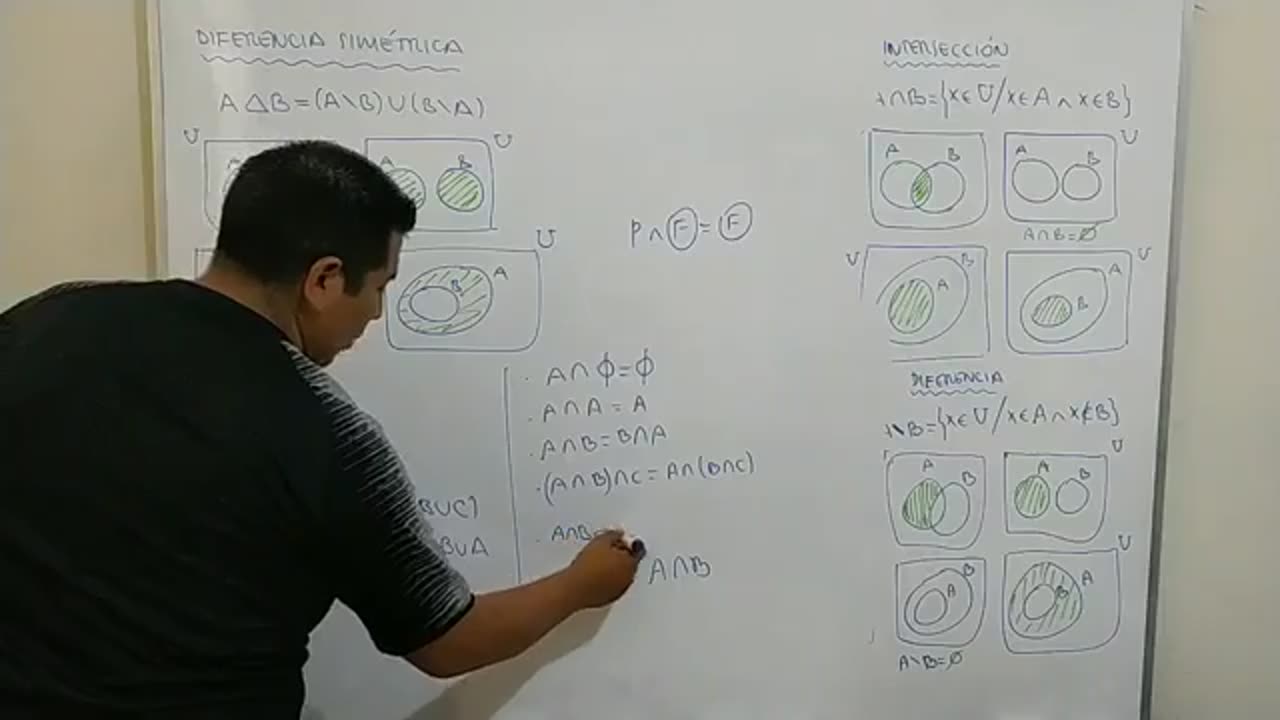 DIFERENCIA SIMÉTRICA
A △ B = (A\B) ∪ (B\A)
U
U
A
A
B
U
A
B
P ∧ F = F
. A ∩ ϕ = ϕ
. A ∩ A = A
. A ∩ B = B ∩ A
. (A ∩ B) ∩ C = A ∩ (B ∩ C)
. A∩B
A ∩ B
B∪C)
B∪A
INTERSECCIÓN
∩B = {x ∈ U / x ∈ A ∧ x ∈ B}
U
A
B
A
B
A∩B=∅
U
B
A
U
A
B
DIFERENCIA
\B = {x ∈ U / x ∈ A ∧ x ∉ B}
U
A
B
A
B
U
B
A
A
B
A\B=∅